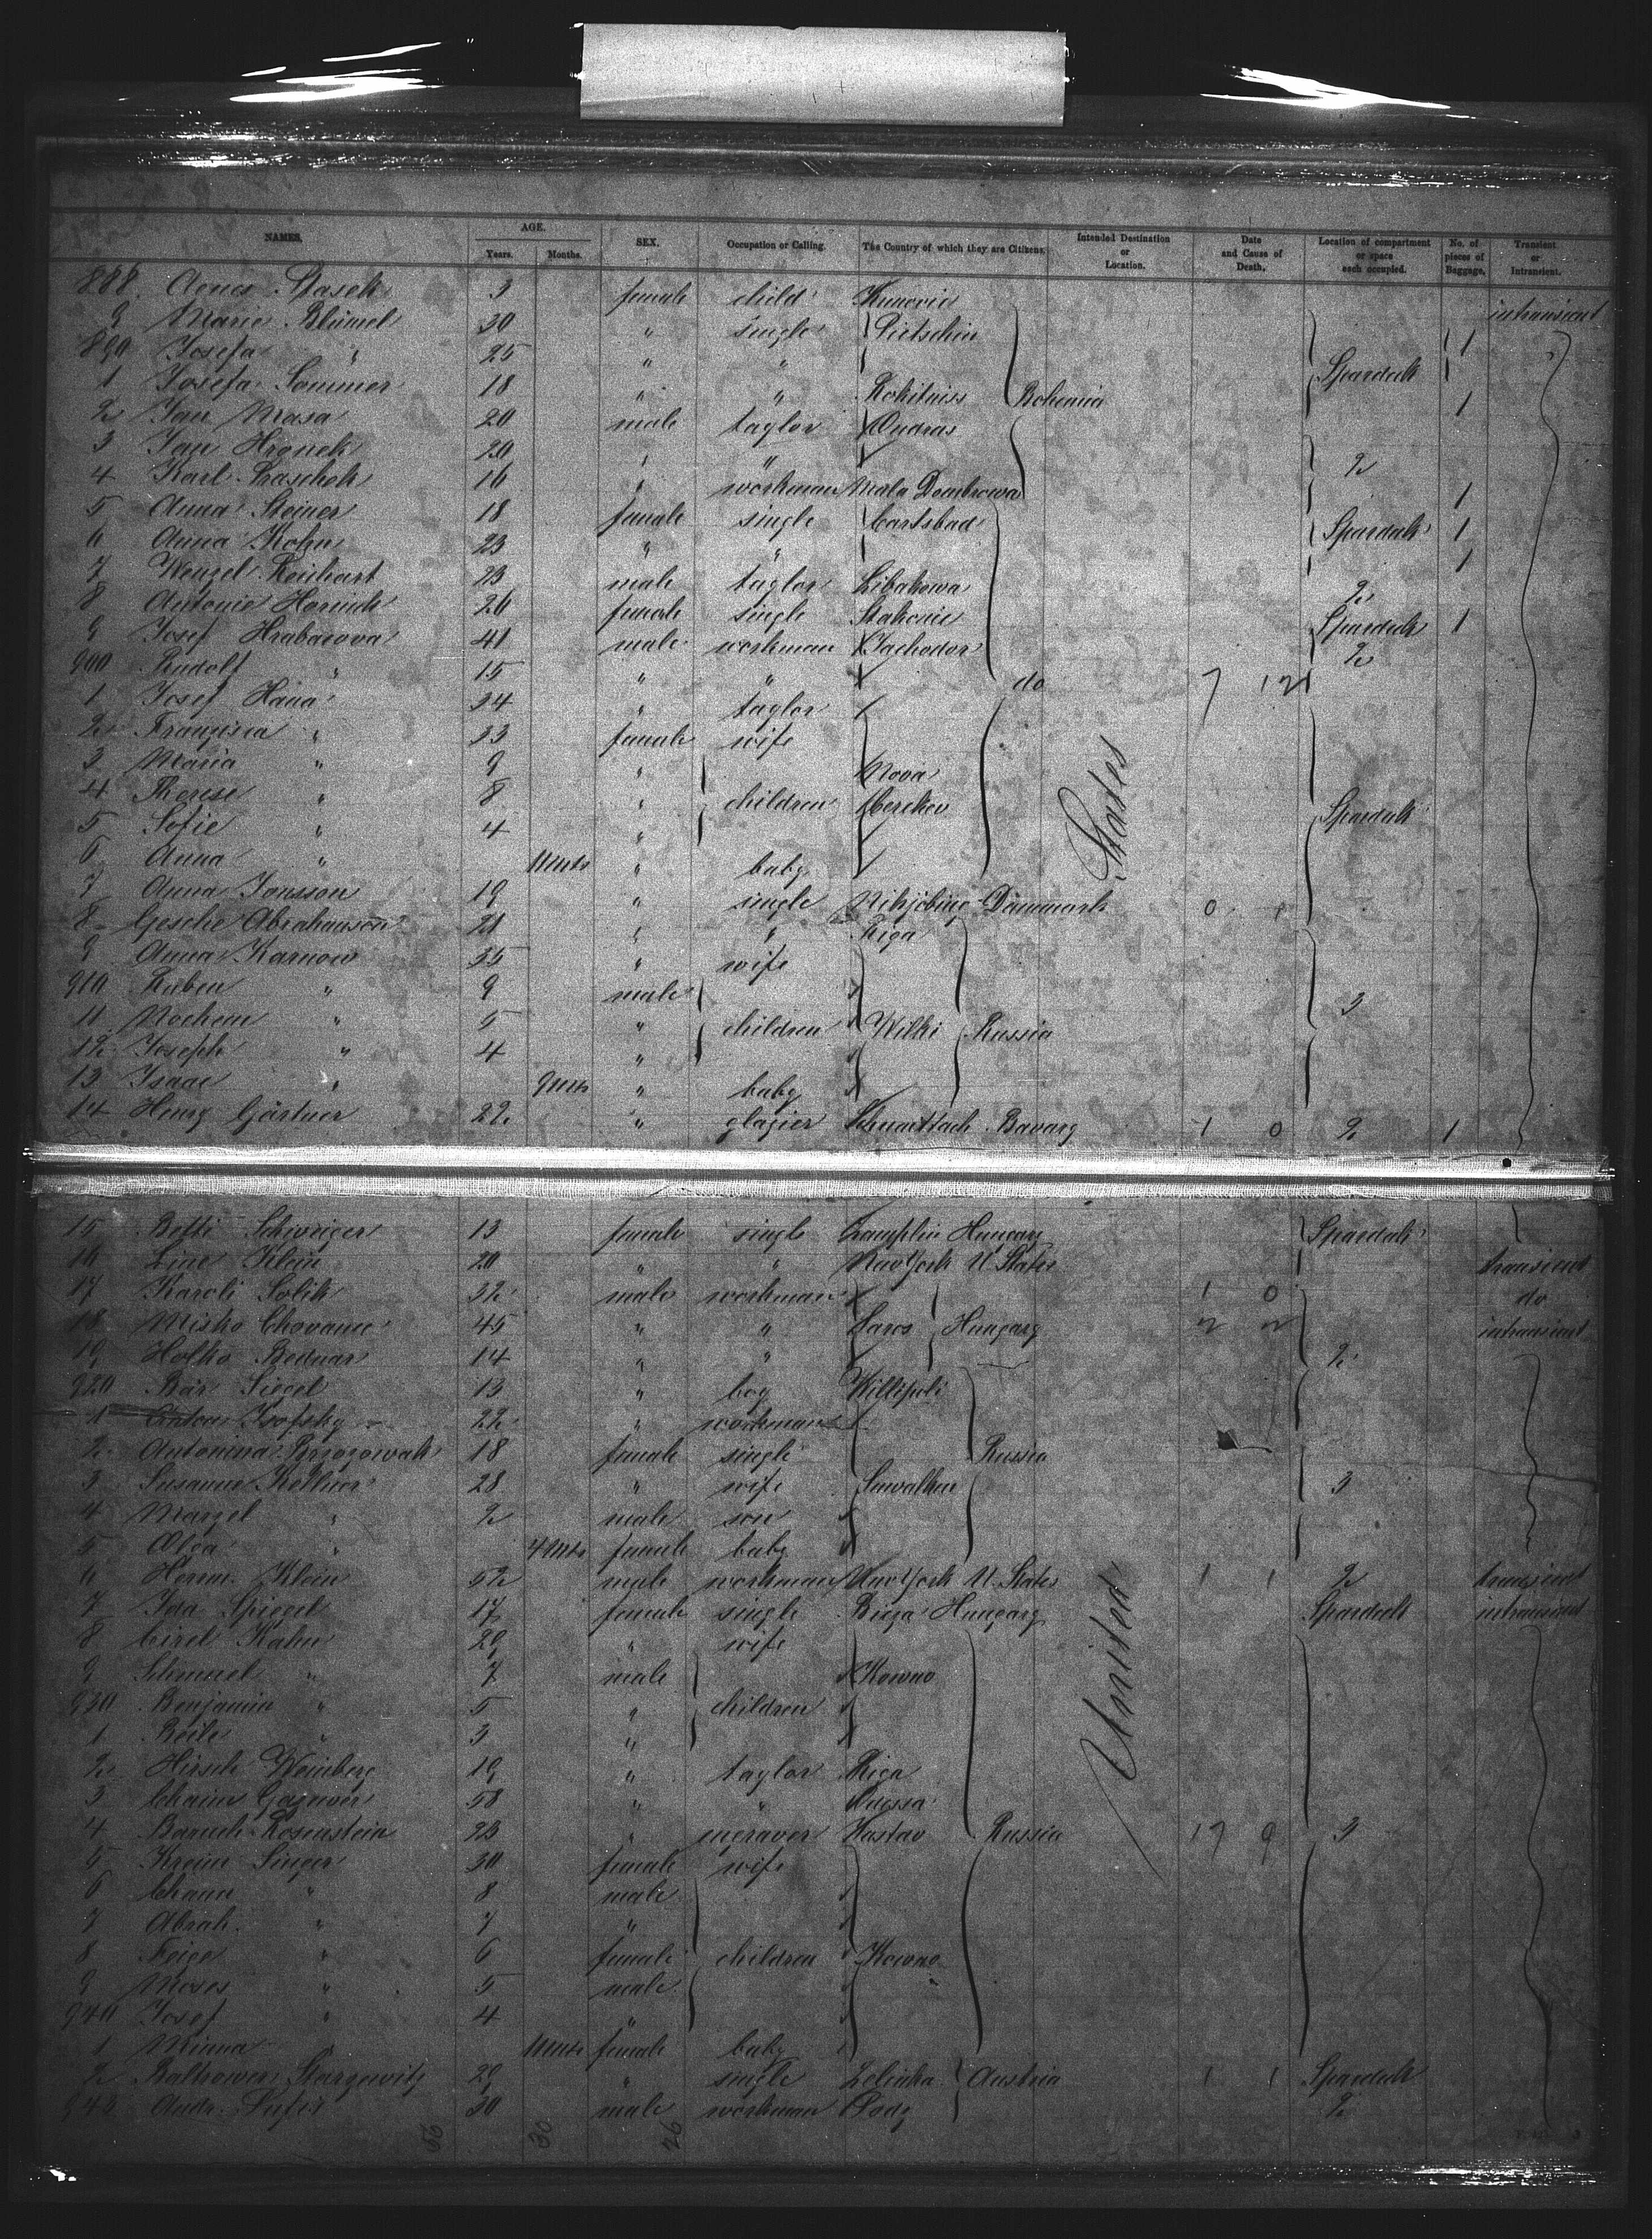 NAMES. AGE. Years. Months. SEX. Occupation or Calling. The Country of which they are Citizens. Intended Destination or Location. Date and Cause of Death. Location of compartment or space each occupied. No. of pieces of Baggage. Transient or Intransient.
888 Agnes Stasek 3 female child Kunovic intransient
9 Marie Blümel 30 " single Pietschin 1
890 Josefa " 25 " "
1 Josefa Sommer 18 " " Rokitniss Bohemia Spardeck 1
2 Jan Masa 20 male taylor Ondras
3 Jan Hronek 20 " " 2
4 Karl 16 " workman Mala Dombrowa 1
5 Anna Steiner 18 female single Carlsbad Spardeck 1
6 Anna Kohn 23 " " 1
7 Wenzel Reichart 23 male taylor Libakowa 2
8 Antonie 26 female single Stakonic Spardeck 1
9 Josef Hrabacova 41 male workman Tachodor 2
900 Rudolf " 15 " " do 7 12
1 Josef Hana 34 " taylor
2 Franzisca " 33 female wife
3 Maria " 9 " Nova
4 Therese " 8 " children Cerekev Spardeck
5 Sofie " 4 "
6 Anna " 11 Mts " baby
7 Anna Jonsson 19 " single Nikjöbing Dänmark 0 1
8 Gesche Abrahamson 21 " " Riga
9 Anna Karnow 35 " wife
910 Ruben " 9 male 3
11 Nochem " 5 " children Wilki Russia
12 Joseph " 4 "
13 Isaac " 9 Mts " baby
14 Henry Gärtner 22 " glazier Schnaittach Bavary 1 0 2 1
15 Betti Schweiger 13 female single Hungary Spardeck
16 Line Klein 20 " " New York U States transient
17 Karoli Solik 32 male workman 1 0 do
18 Misko Chovanec 45 " " Saros Hungary 2 2 intransient
19 Holko Bednar 14 " " 2
920 Bär Siegel 13 " boy
1 22 " workman
2 Antonina 18 female single Russia
3 Susanne Kellner 28 " wife Suwalken 3
4 " 2 male son
5 Olga " 4 Mts female baby
6 Herm. Klein 52 male workman New York U. States 1 1 2 transient
7 Ida Spiegel 17 female single Hungary Spardeck intransient
8 Cirel Kahn 29 " wife
9 Schmuel " 7 male Kowno
930 Benjamin " 5 " children
1 Beile " 3 "
2 Hirsch Weinberg 19 " taylor Riga
3 Chaim 58 " " Odessa
4 Baruch Rosenstein 23 " engraver Russia 17 9 3
5 Singer 30 female wife
6 " 8 male
7 Abrah. " 7 "
8 Feige " 6 female children Kowno
9 Moses " 5 male
940 Josef " 4 "
1 Minna " 11 Mts female baby
2 29 " single Zelinka Austria 1 1 Spardeck
943 Andr. 30 male workman 2
United States
56 30 26